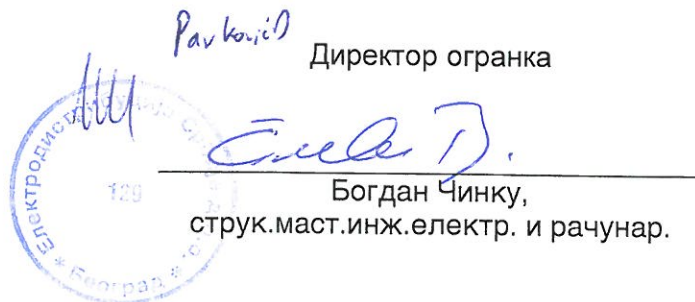 Pavković D
Директор огранка
Богдан Чинку,
струк.маст.инж.електр. и рачунар.
Електродистрибуција
129
* Београд *